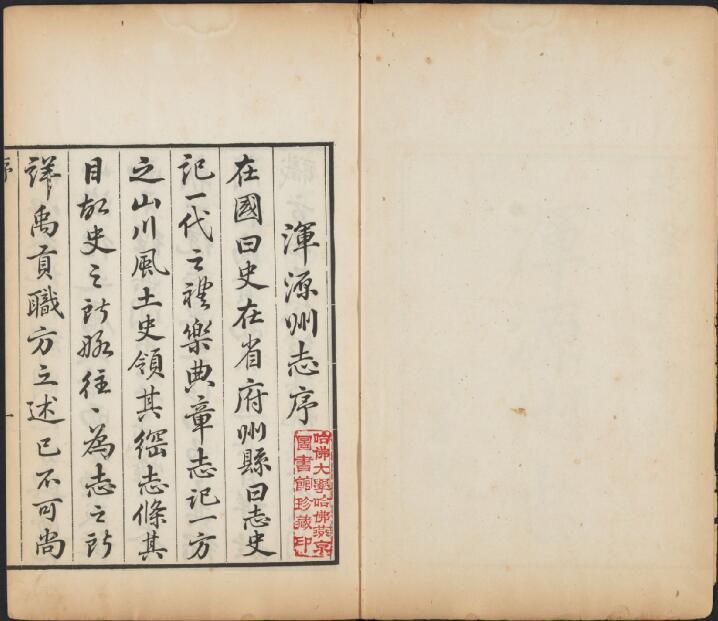 渾源州志序
在國曰史在省府州縣曰志史
記一代之禮樂典章志記一方
之山川風土史領其綱志條其
目故史之所略往〻為志之所
詳禹貢職方之述已不可尚
序
一
哈佛大學哈佛燕京
圖書館珍藏印